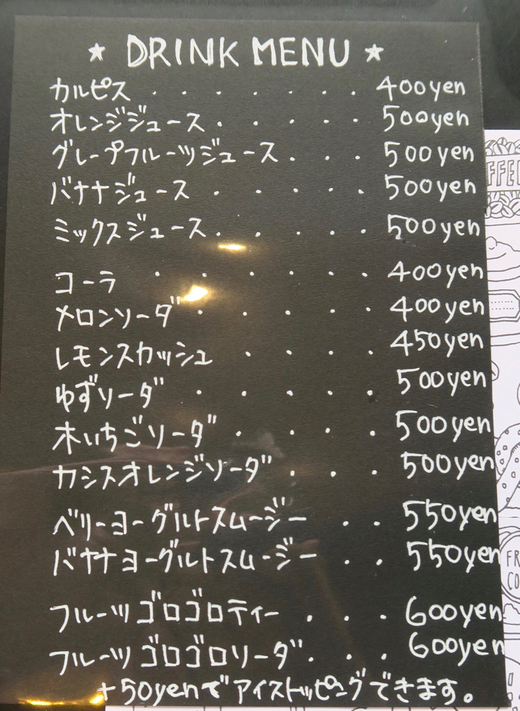 ★ DRINK MENU ★
カルピス . . . . . . . 400yen
オレンジジュース . . . . . 500yen
グレープフルーツジュース . . . 500yen
バナナジュース . . . . . 500yen
ミックスジュース . . . . . 500yen
コーラ . . . . . . . 400yen
メロンソーダ . . . . . 400yen
レモンスカッシュ . . . . 450yen
ゆずソーダ . . . . . 500yen
木いちごソーダ . . . . 500yen
カシスオレンジソーダ . . . 500yen
ベリーヨーグルトスムージー . . 550yen
バナナヨーグルトスムージー . . 550yen
フルーツゴロゴロティー . . . 600yen
フルーツゴロゴロソーダ . . . 600yen
+50yenでアイストッピングできます。